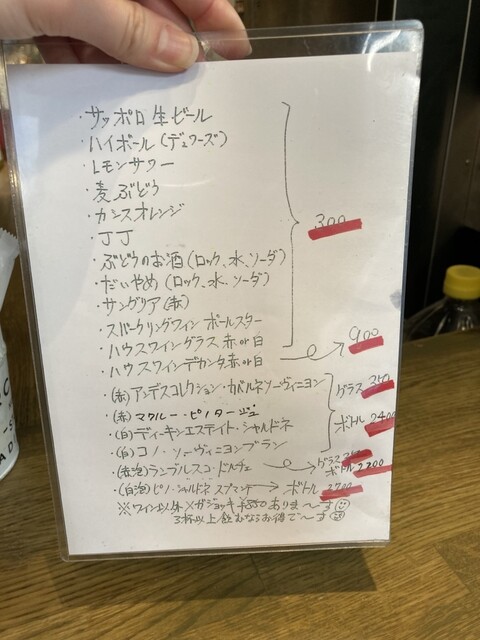 ・サッポロ生ビール
・ハイボール(デュワーズ)
・レモンサワー
・麦ぶどう
・カシスオレンジ
・JJ
・ぶどうのお酒(ロック、水、ソーダ)
・だいやめ(ロック、水、ソーダ)
・サングリア(赤)
・スパークリングワイン ポールスター
・ハウスワイングラス 赤or白
300
・ハウスワインデカンタ 赤or白 900
・(赤)アンデスコレクション・カバルネソーヴィニヨン
・(赤)マクルー・ピノタージュ
・(白)ディーキンエステイト・シャルドネ
・(白)コノ・ソーヴィニヨンブラン
グラス 350
ボトル 2400
・(赤泡)ランブルスコ・ドルチェ グラス 350
ボトル 2200
・(白泡)ピノ・シャルドネ スプマンテ ボトル 2700
※ワイン以外メガジョッキ ¥850ありま〜す
3杯以上飲むならお得で〜す